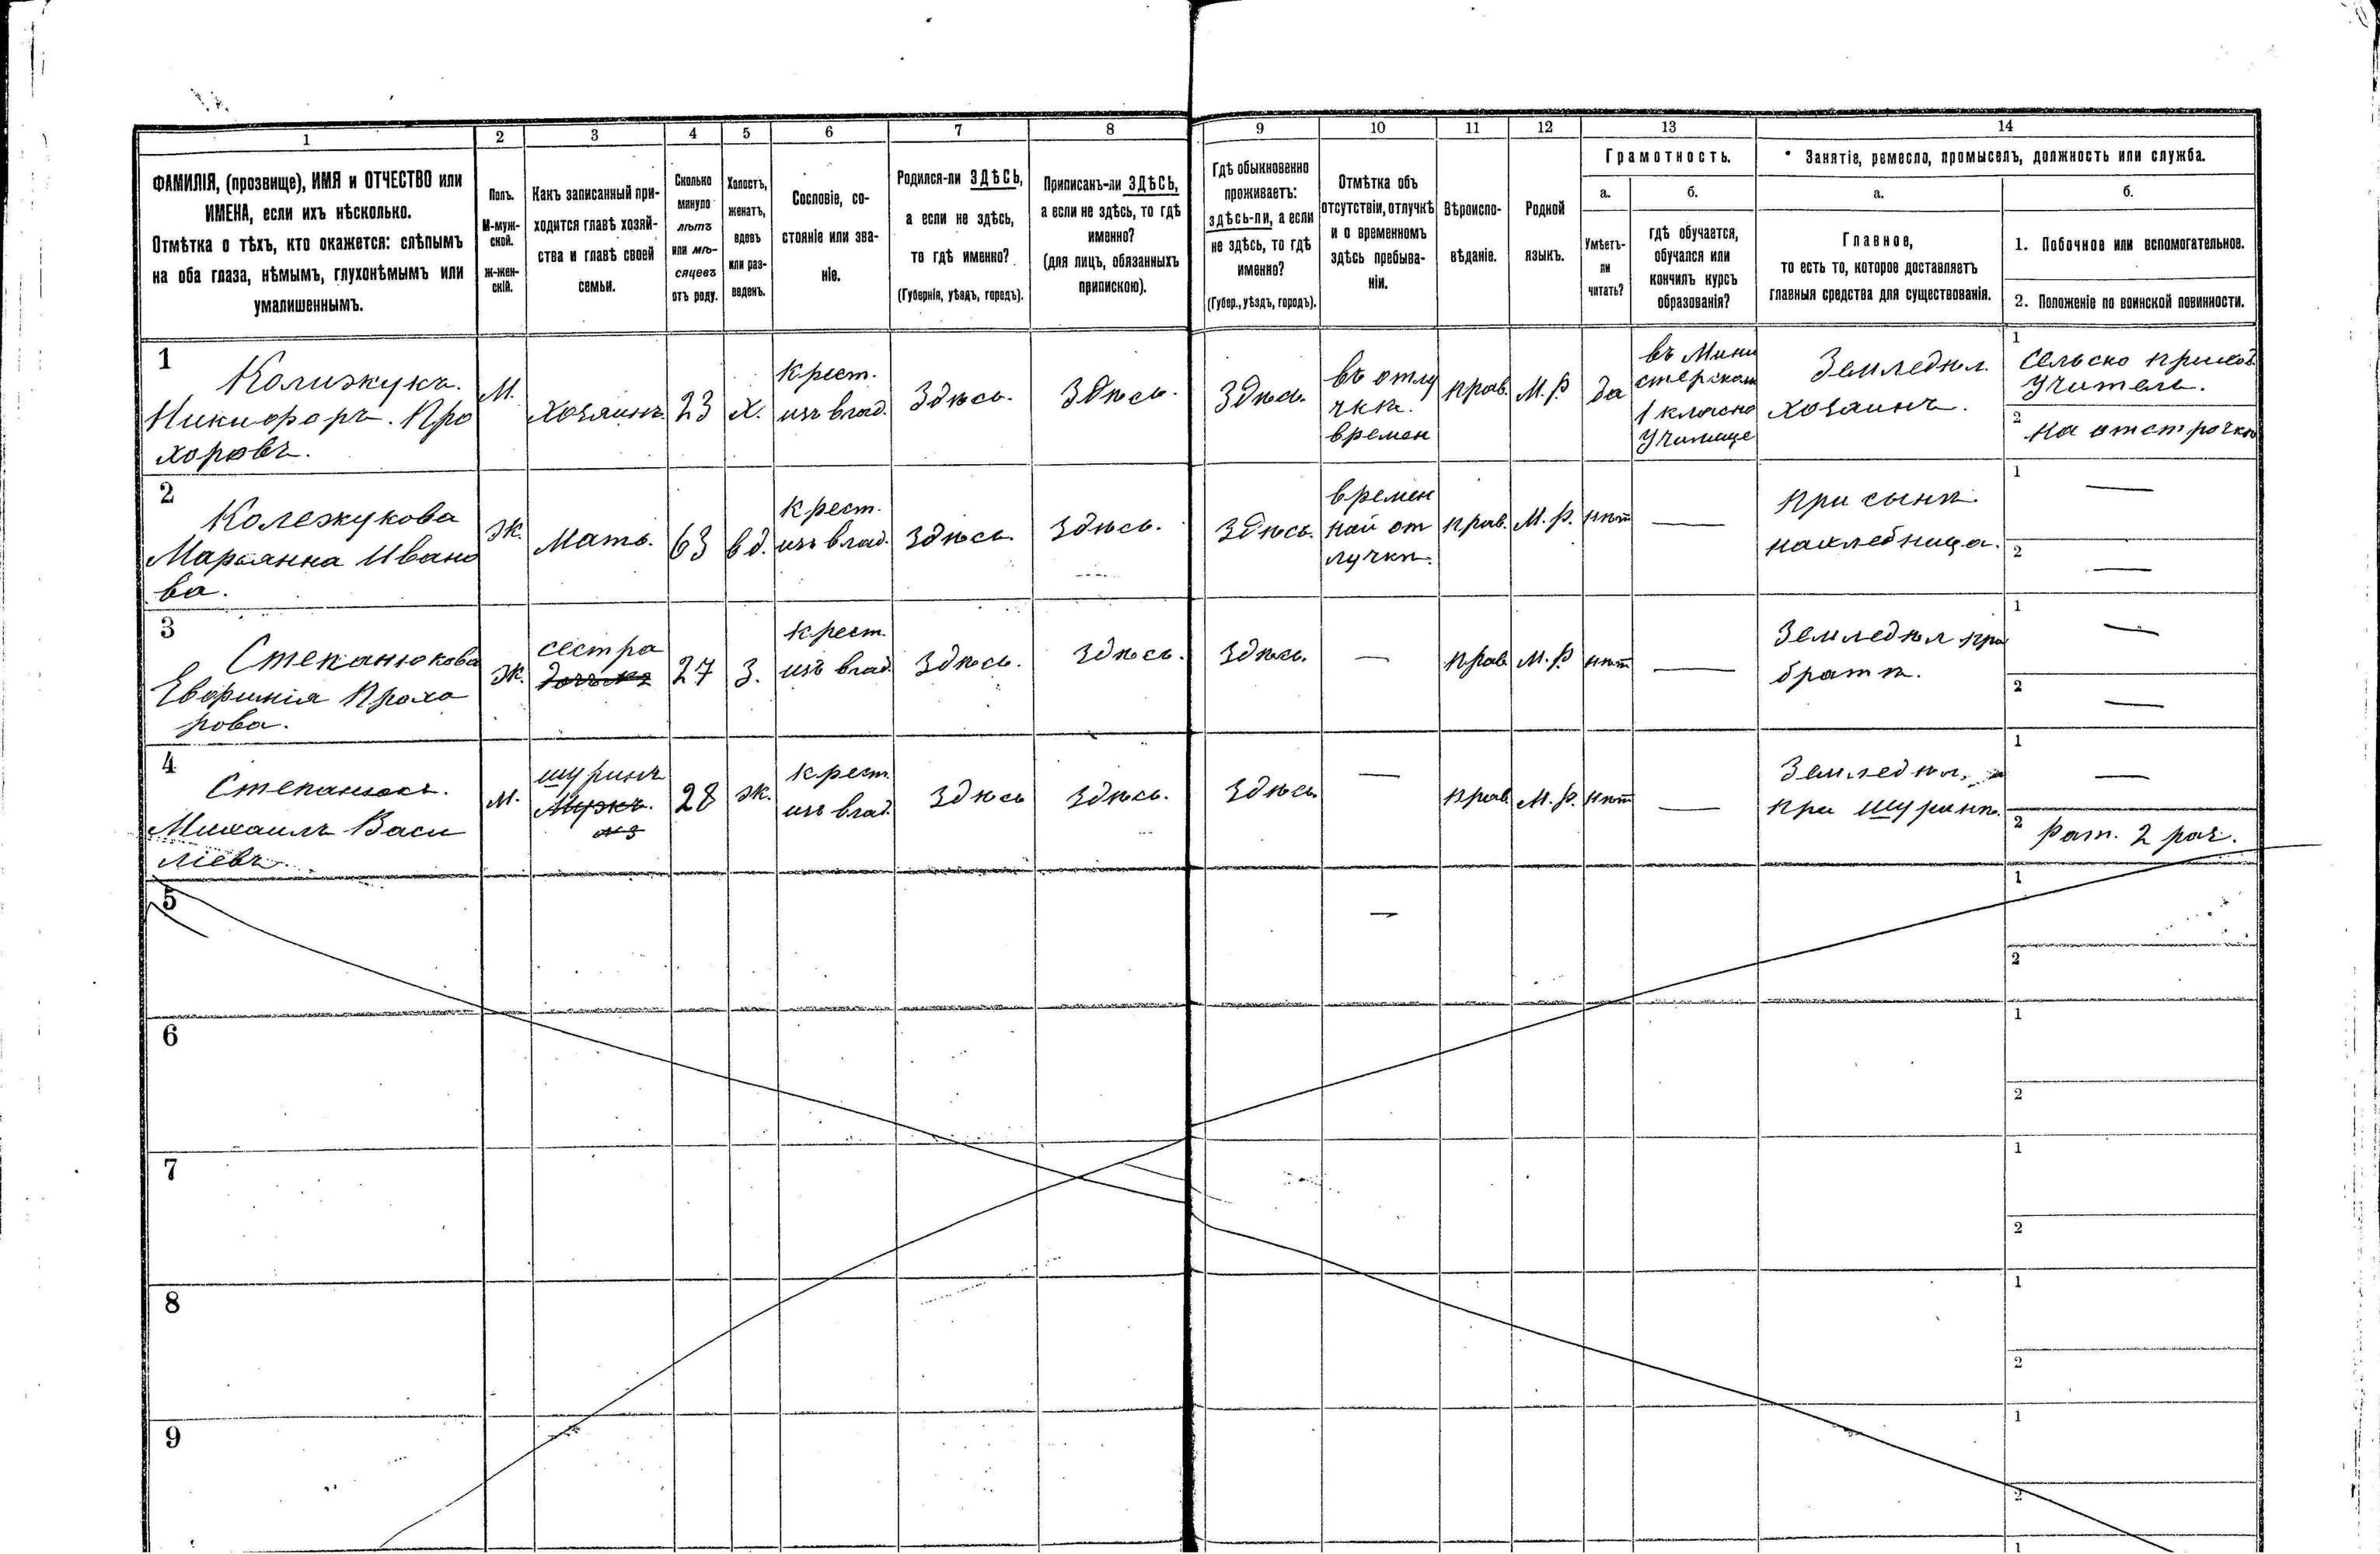 1 2 3 4 5 6 7 8 9 10 11 12 13 14
ФАМИЛІЯ, (прозвище), ИМЯ и ОТЧЕСТВО или
ИМЕНА, если ихъ нѣсколько.
Отмѣтка о тѣхъ, кто окажется: слѣпымъ
на оба глаза, нѣмымъ, глухонѣмымъ или
умалишеннымъ.
Полъ.
М-муж-
ской.
Ж-жен-
скій.
Какъ записанный при-
ходится главѣ хозяй-
ства и главѣ своей
семьи.
Сколько
минуло
лѣтъ
или мѣ-
сяцевъ
отъ роду.
Холостъ,
женатъ,
вдовъ
или раз-
веденъ.
Сословіе, со-
стояніе или зва-
ніе.
Родился-ли ЗДѢСЬ,
а если не здѣсь,
то гдѣ именно?
(Губернія, уѣздъ, городъ).
Приписанъ-ли ЗДѢСЬ,
а если не здѣсь, то гдѣ
именно?
(для лицъ, обязанныхъ
припискою).
Гдѣ обыкновенно
проживаетъ:
здѣсь-ли, а если
не здѣсь, то гдѣ
именно?
(Губер., уѣздъ, городъ).
Отмѣтка объ
отсутствіи, отлучкѣ
и о временномъ
здѣсь пребыва-
ніи.
Вѣроиспо-
вѣданіе.
Родной
языкъ.
Грамотность.
а.
Умѣетъ-
ли
читать?
б.
гдѣ обучается,
обучался или
кончилъ курсъ
образованія?
Занятіе, ремесло, промыселъ, должность или служба.
а.
Главное,
то есть то, которое доставляетъ
главныя средства для существованія.
б.
1. Побочное или вспомогательное.
2. Положеніе по воинской повинности.
1
Колижукъ.
Никифоръ. Про
хоровъ.
М.
Хозяинъ
23
Х.
крест.
изъ влад.
Здѣсь.
Здѣсь.
Здѣсь.
въ отлу
чкѣ.
времен
прав.
М. р
да
въ Мини
стерском
1 класно
училище
Земледѣл.
хозаинъ.
1
сельско приход
учитель.
2
на отстрочкѣ
2
Колежукова
Марьянна Ивано
ва.
ж.
Мать.
63
вд.
крест.
изъ влад.
Здѣсь.
Здѣсь.
Здѣсь.
времен
ной от
лучкѣ.
прав.
М. р.
нѣт
—
при сынѣ
нахлебница.
1
—
2
—
3
Степанюкова
Евфимія Прохо
рова.
ж.
сестра
27
З.
крест.
изъ влад.
Здѣсь.
Здѣсь.
Здѣсь.
—
прав
М. р
нѣт
—
Земледѣл при
братѣ.
1
—
2
—
4
Степанюкъ.
Михаилъ Васи
лісвъ
м.
шуринъ
Мужъ.
№ 3
28
ж.
крест
изъ влад.
Здѣсь
Здѣсь.
Здѣсь
—
прав.
М. р.
нѣт
—
Земледѣл.
при шуринѣ.
1
—
2
Рат. 2 раз.
5
—
1
2
6
1
2
7
1
2
8
1
2
9
1
2
1